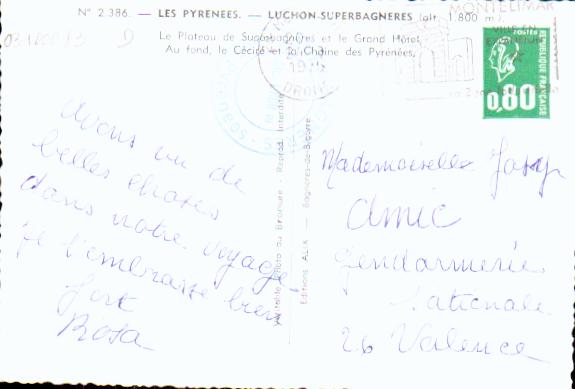 N° 2.386. — LES PYRENEES. — LUCHON-SUPERBAGNERES (alt. 1.800 m.)
Le Plateau de Superbagnères et le Grand Hôtel
Au fond, le Cécité et la Chaîne des Pyrénées.
MONTELIMAR
VILLE EN
DROME
POSTES
0,80
REPUBLIQUE FRANÇAISE
Avons vu de
belles choses
dans notre voyage
Je t'embrasse bien
fort
Rosa
Véritable Photo au Bromure - Reprod. Interdite
Editions ALIX - Bagnères-de-Bigorre
Mademoiselle Josy
Amic
Gendarmerie
Nationale
26 Valence